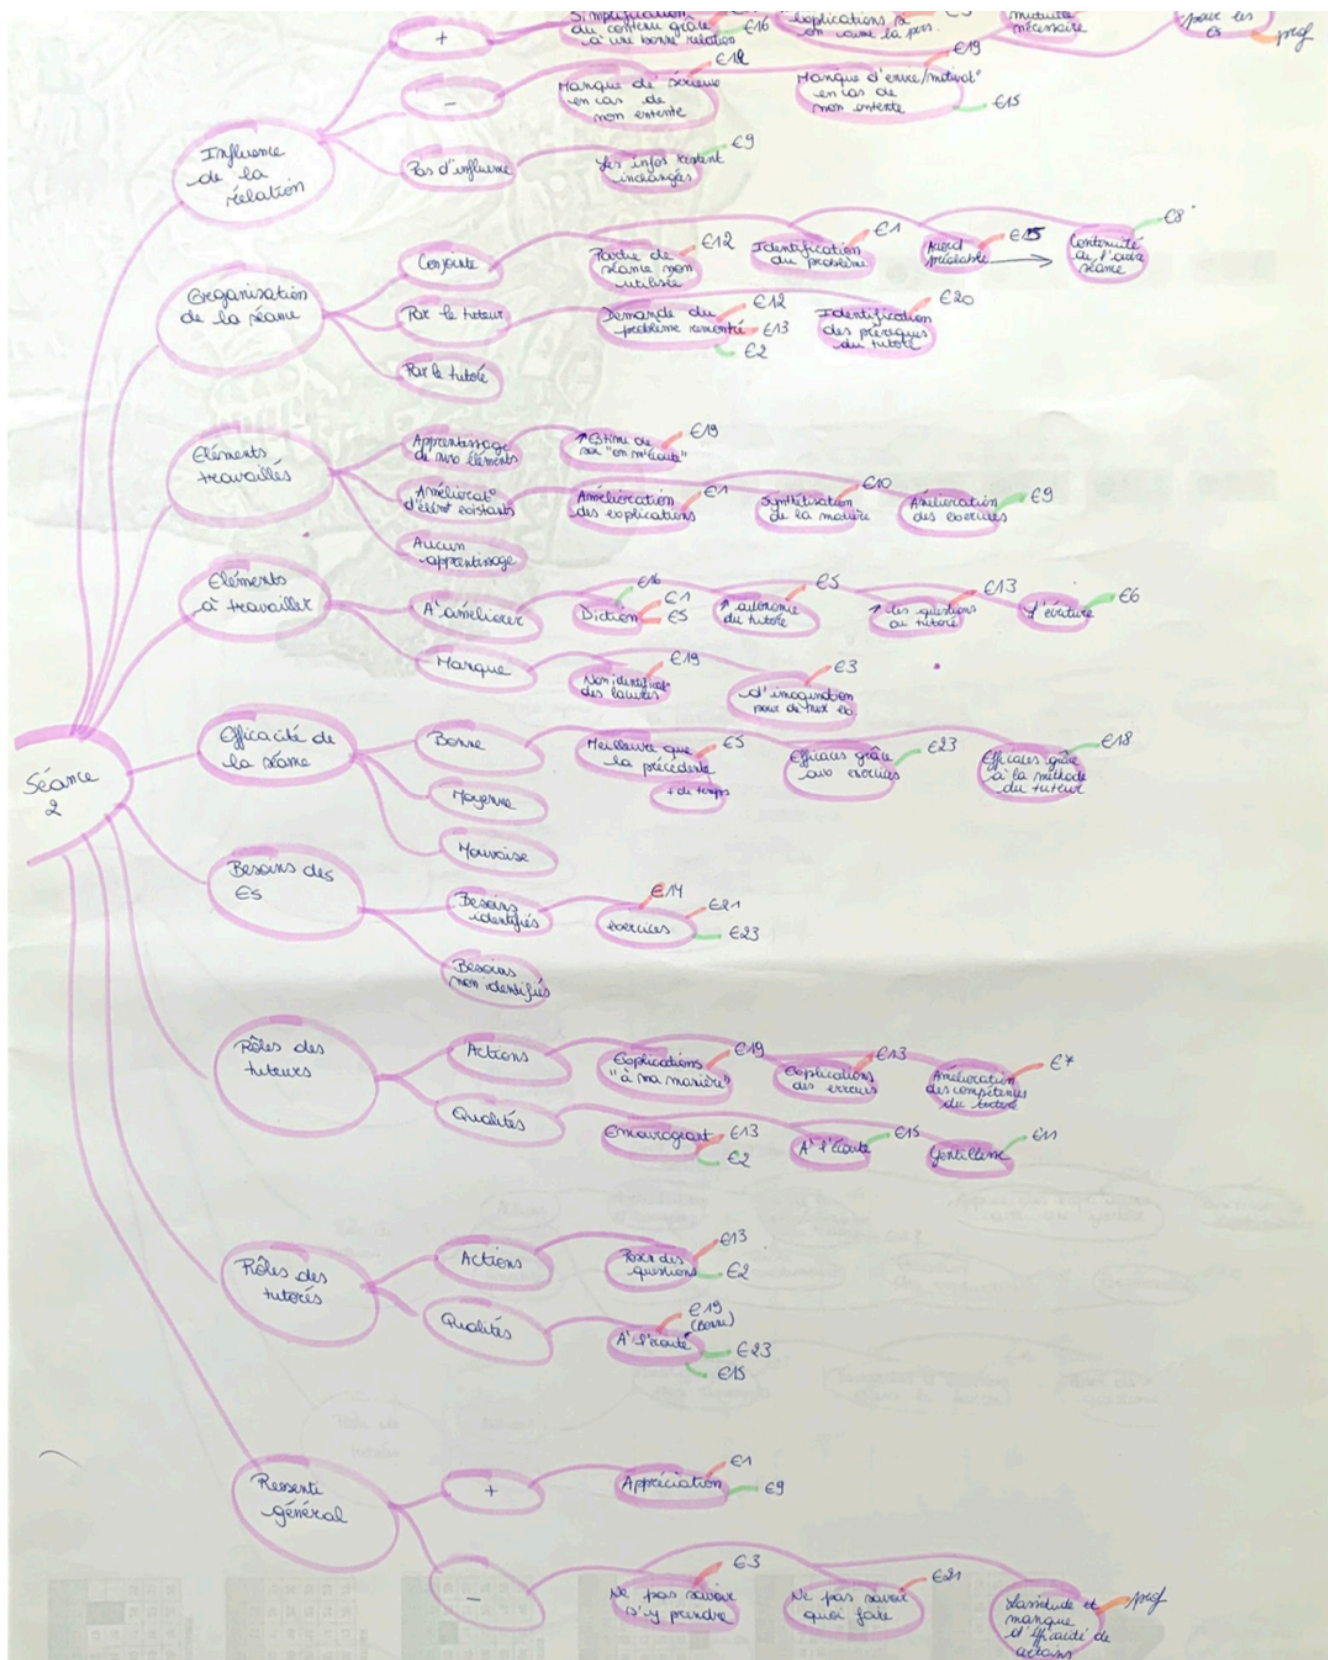 Simplification
du contenu grâce
à une bonne relation
E16
explications si
on connaît la pers.
mutuelle
nécessaire
pour les
Es
prof
+
-
Manque de sérieux
en cas de
non entente
E12
Manque d'envie/motivat°
en cas de
non entente
E19
E15
Influence
de la
relation
Pas d'influence
Les infos restent
inchangées
E9
Organisation
de la séance
Conjointe
Partie de
séance non
utilisée
E12
Identification
du problème
E1
Accord
préalable
E15
Continuité
de l'autre
séance
E8
Par le tuteur
Demande du
problème rencontré
E12
E13
E2
Identification
des prérequis
du tutoré
E20
Par le tutoré
Eléments
travaillés
Apprentissage
de nvx éléments
↑ Estime de
soi "on m'écoute"
E19
Améliorat°
d'élémt existants
Amélioration
des explications
E1
Synthétisation
de la matière
E10
Amélioration
des exercices
E9
Aucun
apprentissage
Eléments
à travailler
A améliorer
Diction
E16
E1
E5
↑ autonomie
du tutoré
E5
↑ les questions
au tutoré
E13
L'écriture
E6
Manque
Non identificat°
des lacunes
E19
d'imagination
pour de nvx ex
E3
Séance
2
Efficacité de
la séance
Bonne
Meilleure que
la précédente
+ de temps
E5
Efficaces grâce
aux exercices
E23
Efficaces grâce
à la méthode
du tuteur
E18
Moyenne
Mauvaise
Besoins des
Es
Besoins
identifiés
exercices
E14
E21
E23
Besoins
non identifiés
Rôles des
tuteurs
Actions
Explications
"à ma manière"
E19
Explications
des erreurs
E13
Amélioration
des compétences
du tutoré
E7
Qualités
Encourageant
E13
E2
A l'écoute
E15
Gentillesse
E11
Rôles des
tutorés
Actions
Poser des
questions
E13
E2
Qualités
A l'écoute
E19
(Bonne)
E23
E15
Ressenti
général
+
Appréciation
E1
E9
-
Ne pas savoir
s'y prendre
E3
Ne pas savoir
quoi faire
E21
Lassitude et
manque
d'efficacité de
certains
prof